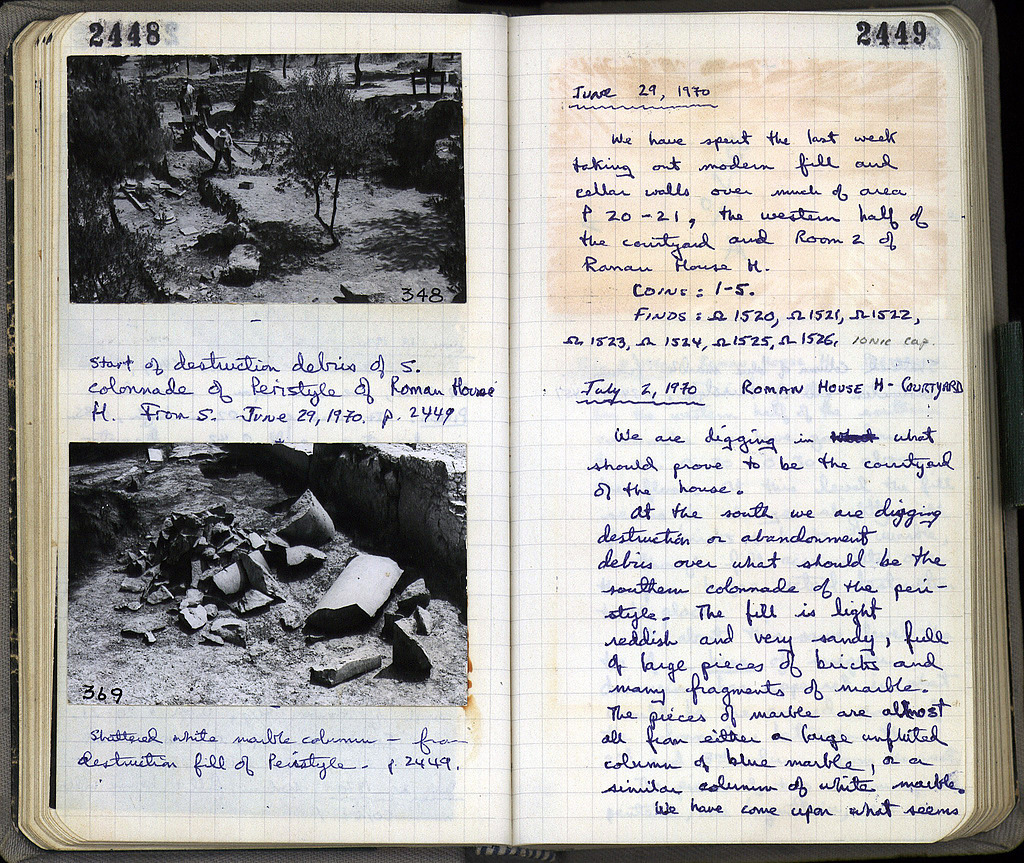 2448
348
Start of destruction debris of S.
colonnade of Peristyle of Roman House
H. From S. June 29, 1970. p. 2449
369
Shattered white marble column – from
destruction fill of Peristyle. p. 2449.
2449
June 29, 1970
We have spent the last week
taking out modern fill and
cellar walls over much of area
P 20-21, the western half of
the courtyard and Room 2 of
Roman House H.
Coins: 1-5.
Finds: Ω 1520, Ω 1521, Ω 1522,
Ω 1523, Ω 1524, Ω 1525, Ω 1526, Ionic cap.
July 2, 1970 Roman House H - Courtyard
We are digging in what
should prove to be the courtyard
of the house.
At the south we are digging
destruction or abandonment
debris over what should be the
southern colonnade of the peri-
style. The fill is light
reddish and very sandy, full
of large pieces of bricks and
many fragments of marble.
The pieces of marble are almost
all from either a large unfluted
column of blue marble, or a
similar column of white marble.
We have come upon what seems